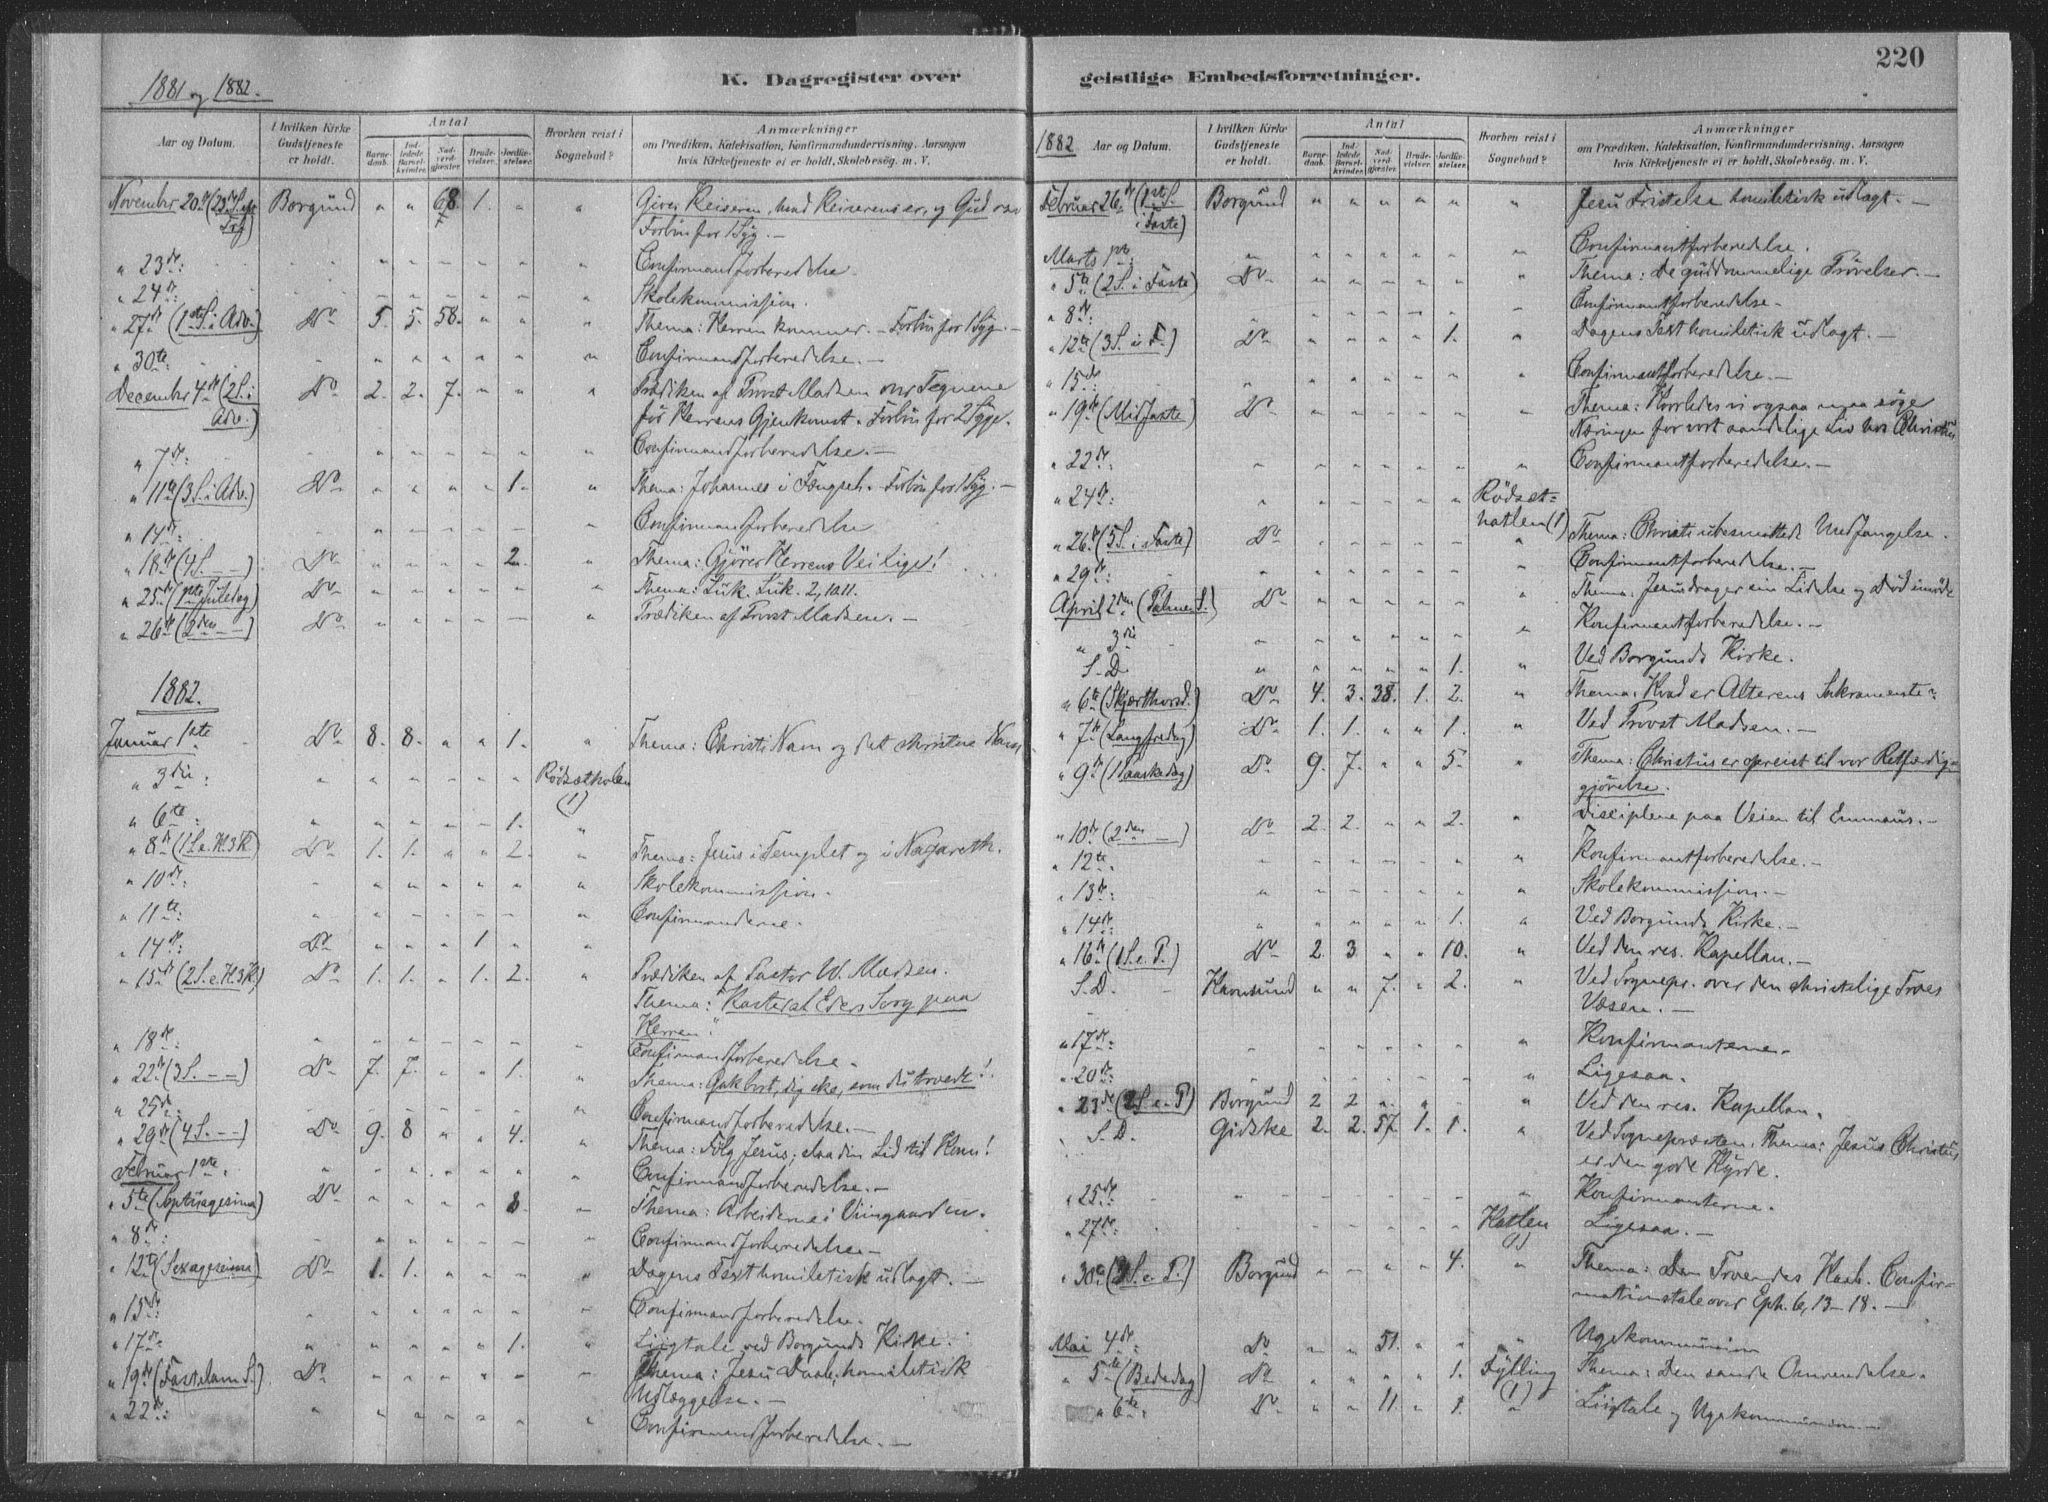 220
1881 og 1882.
K. Dagregister over
Aar og Datum.
I hvilken Kirke Gudstjeneste er holdt.
Antal
Barnedaab.
Indledede Barselkvinder.
Nadverdgjæster.
Brudevielser.
Jordfæstelser.
Hvorhen reist i Sognebud?
Anmærkninger
om Prædiken, Katekisation, Konfirmandundervisning, Aarsagen
hvis Kirketjeneste ei er holdt, Skolebesøg. m. V.
November 20de (23de S. e. Borgund " " 68 1. " " Giver Keiseren, hvad Keiserens er, og Gud
Forbön for 1 Syg. —
" 23de: Confirmandforberedelse.
" 24de: Skolekommission.
" 27de (1ste S. i Adv.) Do 5. 5. 58. " " " Thema: Herren kommer. — Forbön for 1 Syg. —
" 30te Confirmandforberedelse. —
December 4de (2 S. i Do 2. 2. 7. " " " Prædiken af Provst Madsen over Tegnene
Adv.) för Herrens Gjenkomst. Forbön for 2 Syge.
" 7de: Confirmandforberedelse. —
" 11te (3 S. i Adv.) Do " " " " 1. " Thema: Johannes i Fængsel. — Forbön for 1 Syg. —
" 14de: Confirmandforberedelse
" 18de (4 S. — —) Do " " " " 2. " Thema: Gjörer Herrens Vei lige!
" 25de (1ste Juledag) Do Thema: Luk. Luk. 2, 10.11.
" 26de (2den — —) Do Prædiken af Provst Madsen. —
1882.
Januar 1ste Do 8. 8. " " 1. " Thema: Christi Navn og det christne Navn
" 3die: Rödsætholen
(1)
" 6te: 1. "
" 8de (1 S. e. H.3K) Do 1. 1. " " 2. " Thema: Jesus i Templet og i Nazareth.
" 10de: Skolekommission.
" 11te: Confirmanderne.
" 14de: Do " " " 1 " "
" 15de (2 S. e. H.3K.) Do 1. 1. " 1. 2. " Prædiken af Pastor W. Madsen.
Thema: "Kaster al Eders Sorg paa
Herren".
" 18de: Confirmandforberedelse.
" 22de (3 S. — —) Do 7. 7. " " 1. " Thema: Gak bort, dig ske, som du troede!
" 25de: Confirmandforberedelse. —
" 29de (4 S. — —) Do 9. 8 " " 4. " Thema: Fölg Jesus, slaa din Lid til Ham!
Februar 1ste. Confirmandforberedelse. —
" 5te (Septuagesima) Do " " " " 8. Thema: Arbeiderne i Viingaarden.
" 8de: Confirmandforberedelse —
" 12te (Sexagesima) Do 1. 1. " " " " Dagens Text homiletisk udlagt. —
" 15de: Confirmandforberedelse.
" 17de: " " " " 1. " Liigtale ved Borgunds Kirke.
" 19de (Fastelavns S.) Do Thema: Jesu Daab, homiletisk
Udlæggelse. —
" 22de: Confirmandforberedelse. —
geistlige Embedsforretninger.
1882
Aar og Datum.
I hvilken Kirke Gudstjeneste er holdt.
Antal
Barnedaab.
Indledede Barselkvinder.
Nadverdgjæster.
Brudevielser.
Jordfæstelser.
Hvorhen reist i Sognebud?
Anmærkninger
om Prædiken, Katekisation, Konfirmandundervisning, Aarsagen
hvis Kirketjeneste ei er holdt, Skolebesøg. m. V.
Februar 26de (1ste S. Borgund " " " " " " Jesu Fristelse homiletisk udlagt. —
i Faste)
Marts 1ste: Confirmantforberedelse.
" 5te (2 S. i Faste) Do Thema: De guddommelige Prövelser. —
" 8de: Confirmantforberedelse —
" 12te (3 S. i F.) Do " " " " 1. " Dagens Text homiletisk udlagt. —
" 15de: Confirmantforberedelse. —
" 19de (Midfaste) Do Thema: Hvorledes vi ogsaa maa söge
Næringen for vort aandelige Liv hos Christus
" 22de: Confirmantforberedelse. —
" 24de: Rödset-
hatlen (1)
" 26de (5 S. i Faste) Do Thema: Christi ubesmittede Undfangelse.
" 29de: Confirmantforberedelse. —
April 2den (Palme S.) Do Thema: Jesus drager sin Lidelse og Död imöde
" 3die Konfirmantforberedelse. —
S. D. " " " " 1. " Ved Borgunds Kirke.
" 6te (Skjærthorsd.) Do 4. 3. 38. 1. 2. " Thema: Hvad er Alterens Sakramente?
" 7de (Langfredag) Do 1. 1. " " 1. " Ved Provst Madsen. —
" 9de (1 Paaskedag) Do 9. 7. " " 5. " Thema: Christus er opreist til vor Retfærdig-
gjörelse.
" 10de (2den —) Do 2. 2. " " 2. " Disciplene paa Veien til Emmaus. —
" 12te Konfirmantforberedelse. —
" 13de: Skolekommission. —
" 14de: " " " " 1. " Ved Borgunds Kirke. —
" 16de (1 S. e. P.) Do 2. 3. " " 10. " Ved den res. Kapellan. —
S. D. Havnsund " " 7. " 2. " Ved Sognepr. over den christelige Troes
Væsen. —
" 17de: Konfirmanterne.
" 20de: Ligesaa.
" 23de (2 S. e. P) Borgund 2 2 " " " Ved den res. Kapellan.
S. D. Gidske 2. 2. 57. 1. 1. " Ved Sognepræsten. Thema: Jesus Christus
er den gode Hyrde.
" 25de: Konfirmanterne.
" 27de: Hatlen Ligesaa. —
(1)
" 30te (3 S. e. P.) Borgund " " " " 4. " Thema: Den Troendes Haab. Confir-
mationstale over Eph. 6, 13–18. —
Mai 4de: Do " " 51. " " " Ugekommunion
" 5te (Bededag) Do " " " " 1. Fylling Thema: Den sande Omvendelse.
(1)
" 6te: Do " " 11. " 1. " Liigtale og Ugekommunion. —